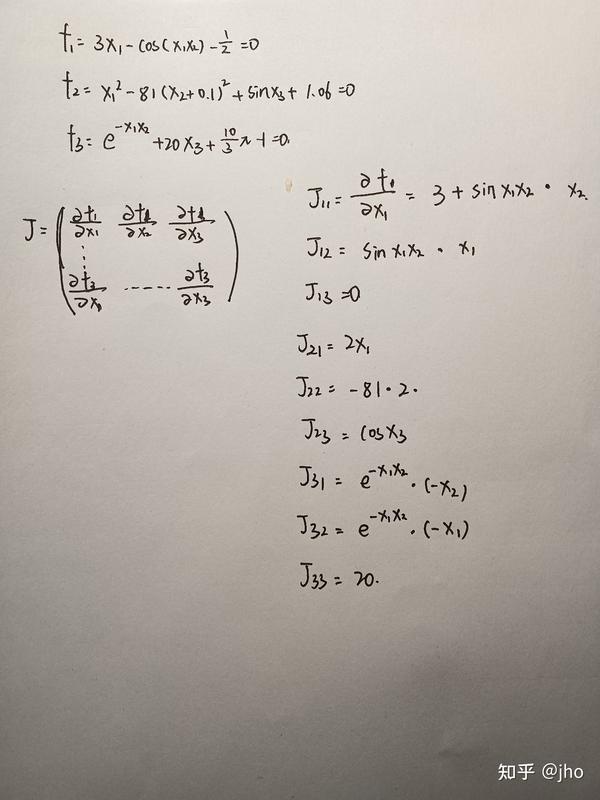 f₁= 3x₁-cos(x₁x₂)-1/2=0
f₂= x₁²-81(x₂+0.1)²+sinx₃+1.06=0
f₃= e^(-x₁x₂)+20x₃+10/3π-1=0.
J=(∂f₁/∂x₁ ∂f₁/∂x₂ ∂f₁/∂x₃
⋮
∂f₃/∂x₁ ...... ∂f₃/∂x₃)
J₁₁=∂f₁/∂x₁= 3+sinx₁x₂·x₂
J₁₂= sinx₁x₂·x₁
J₁₃=0
J₂₁=2x₁
J₂₂=-81·2.
J₂₃=cosx₃
J₃₁= e^(-x₁x₂)·(-x₂)
J₃₂= e^(-x₁x₂)·(-x₁)
J₃₃=20.
知乎 @jho